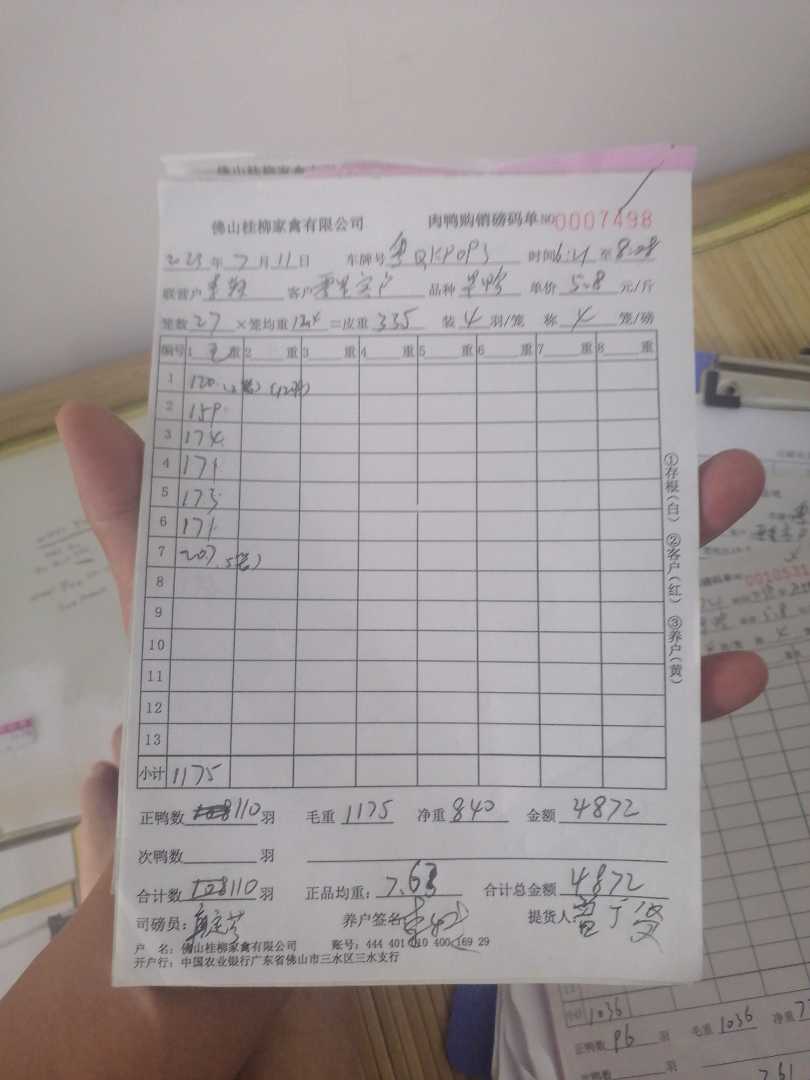 佛山桂柳家禽有限公司 肉鸭购销磅码单 NO 0007498
2023年7月11日 车牌号 粤QKP0P5 时间6:21至8:08
联营户 客户 品种 单价 5.8 元/斤
笼数 27 ×笼均重 12.4 =皮重 335 装 4 羽/笼 称 4 笼/磅
编号 1 毛重 2 重 3 重 4 重 5 重 6 重 7 重 8 重
1 120.
2 159.
3 174.
4 171
5 173
6 171.
7 207.
8
9
10
11
12
13
小计 1175
①存根(白) ②客户(红) ③养户(黄)
正鸭数 110 羽 毛重 1175 净重 840 金额 4872
次鸭数 羽
合计数 110 羽 正品均重: 7.63 合计总金额 4872
司磅员: 养户签名 提货人:
户 名: 佛山桂柳家禽有限公司 账号: 444 401 010 400 169 29
开户行: 中国农业银行广东省佛山市三水区三水支行
0010531
5.8
小计 1036
正鸭数 96 羽 毛重 1036 净重
羽